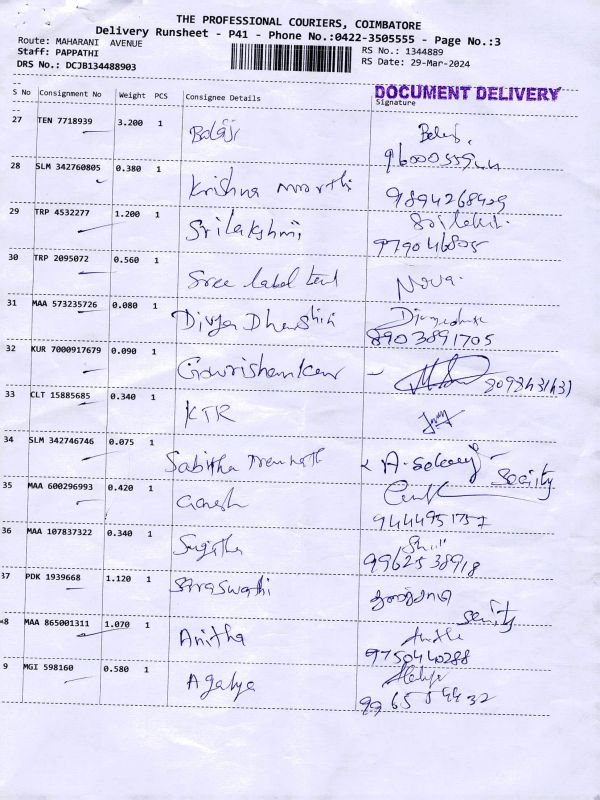 THE PROFESSIONAL COURIERS, COIMBATORE
Delivery Runsheet - P41 - Phone No.:0422-3505555 - Page No.:3
Route: MAHARANI AVENUE RS No.: 1344889
Staff: PAPPATHI RS Date: 29-Mar-2024
DRS No.: DCJB134488903
DOCUMENT DELIVERY
S No Consignment No Weight PCS Consignee Details Signature
27 TEN 7718939 3.200 1 Balaji
28 SLM 342760805 0.380 1 Krishna moorthi
9894268429
29 TRP 4532277 1.200 1 Srilakshmi
979046805
30 TRP 2095072 0.560 1 Sree label
31 MAA 573235726 0.080 1 Divya Dharshini
8903891705
32 KUR 7000917679 0.090 1 Gowrishankar -
33 CLT 15885685 0.340 1 KTR
34 SLM 342746746 0.075 1 Sabitha
35 MAA 600296993 0.420 1 Ganesh
9444951757
36 MAA 107837322 0.340 1 Sugitha
9962538918
37 PDK 1939668 1.120 1 Saraswathi
38 MAA 865001311 1.070 1 Anitha
9750440288
9 MGI 598160 0.580 1 Agalya
9965544432